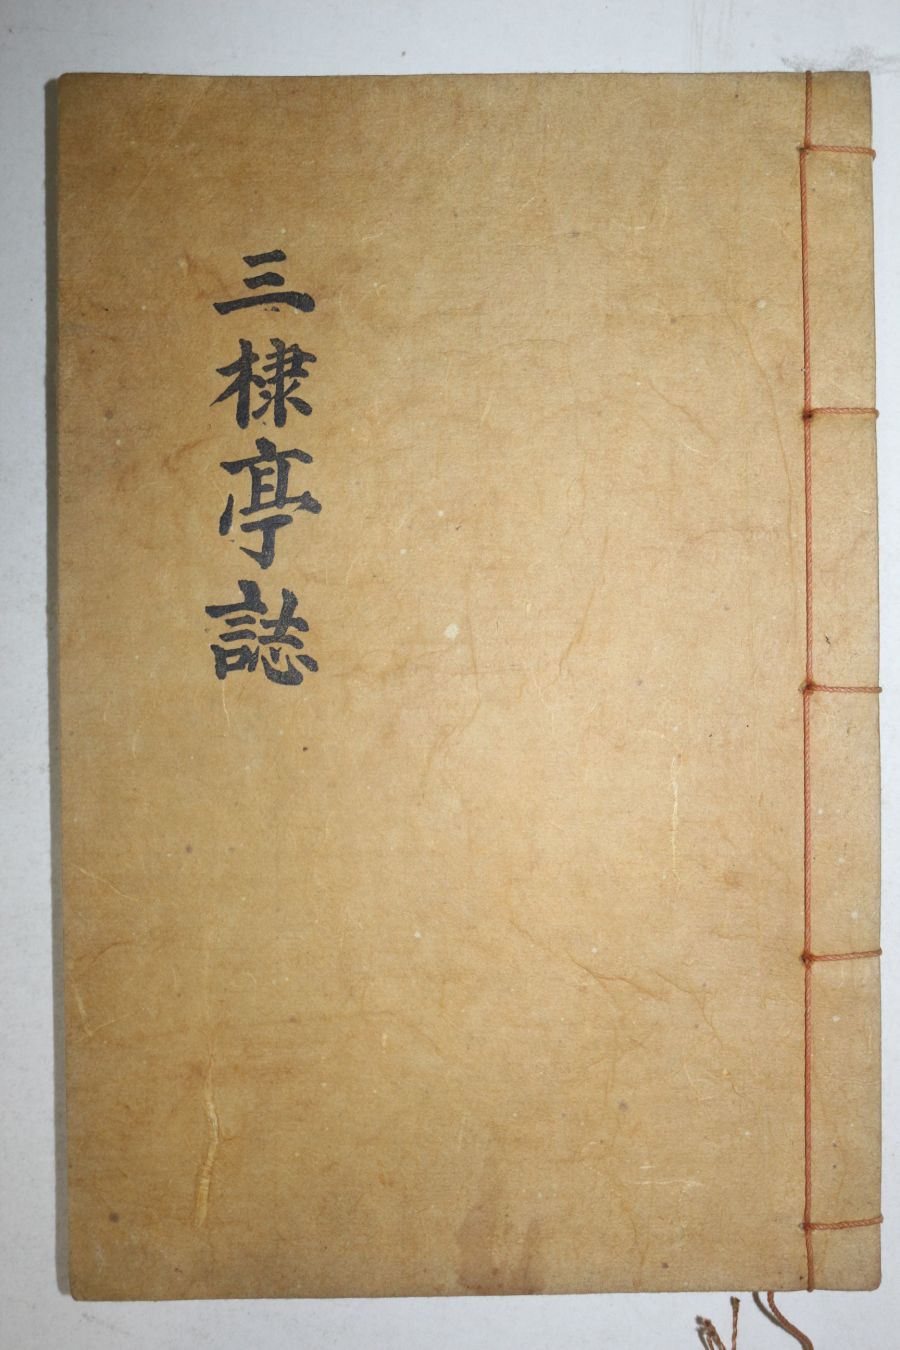 三棣亭誌